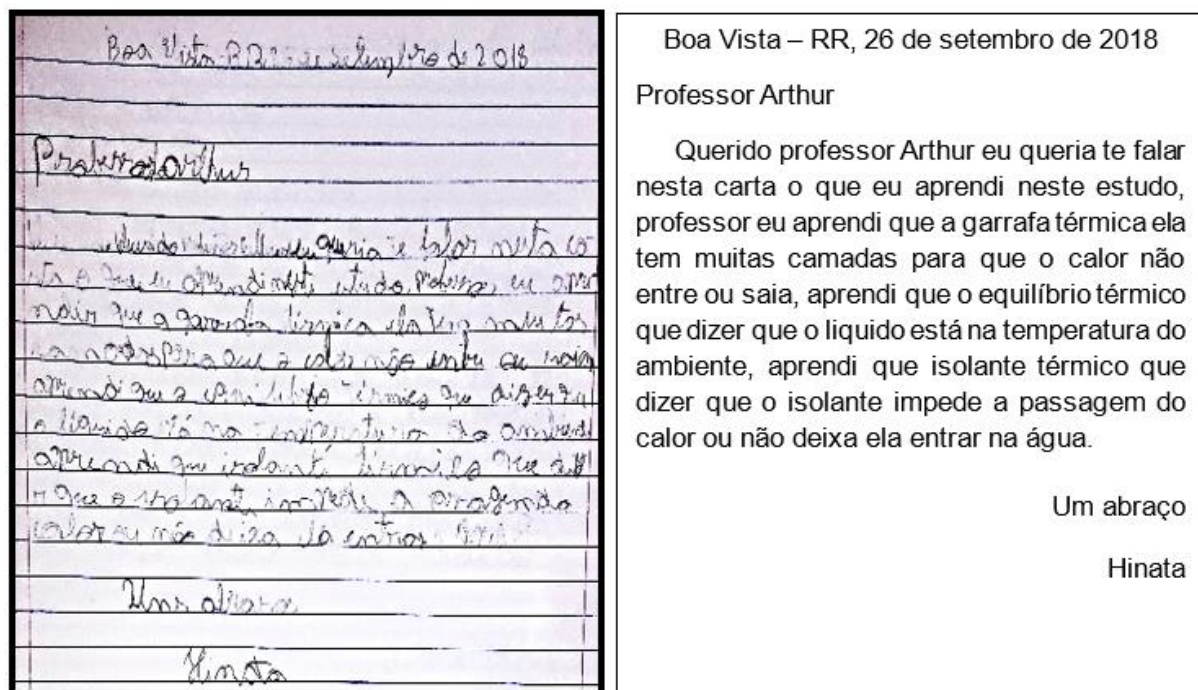 Boa Vista-RR 26 de setembro de 2018
Professor Arthur
queria te falar nesta ca
rta o que eu aprendi neste estudo, Professor eu apre
ndir que a garrafa térmica ela tem muitas
camadas para que o calor não entre ou saia
aprendi que o equilibrio termico que dizer que
o liquido tá na temperatura do ambiente
aprendi que isolante termico que dize
r que o isolante impede a pasagem do
calor ou não deixa ela entrar
Um abraço
Hinata
Boa Vista – RR, 26 de setembro de 2018
Professor Arthur
Querido professor Arthur eu queria te falar
nesta carta o que eu aprendi neste estudo,
professor eu aprendi que a garrafa térmica ela
tem muitas camadas para que o calor não
entre ou saia, aprendi que o equilíbrio térmico
que dizer que o liquido está na temperatura do
ambiente, aprendi que isolante térmico que
dizer que o isolante impede a passagem do
calor ou não deixa ela entrar na água.
Um abraço
Hinata